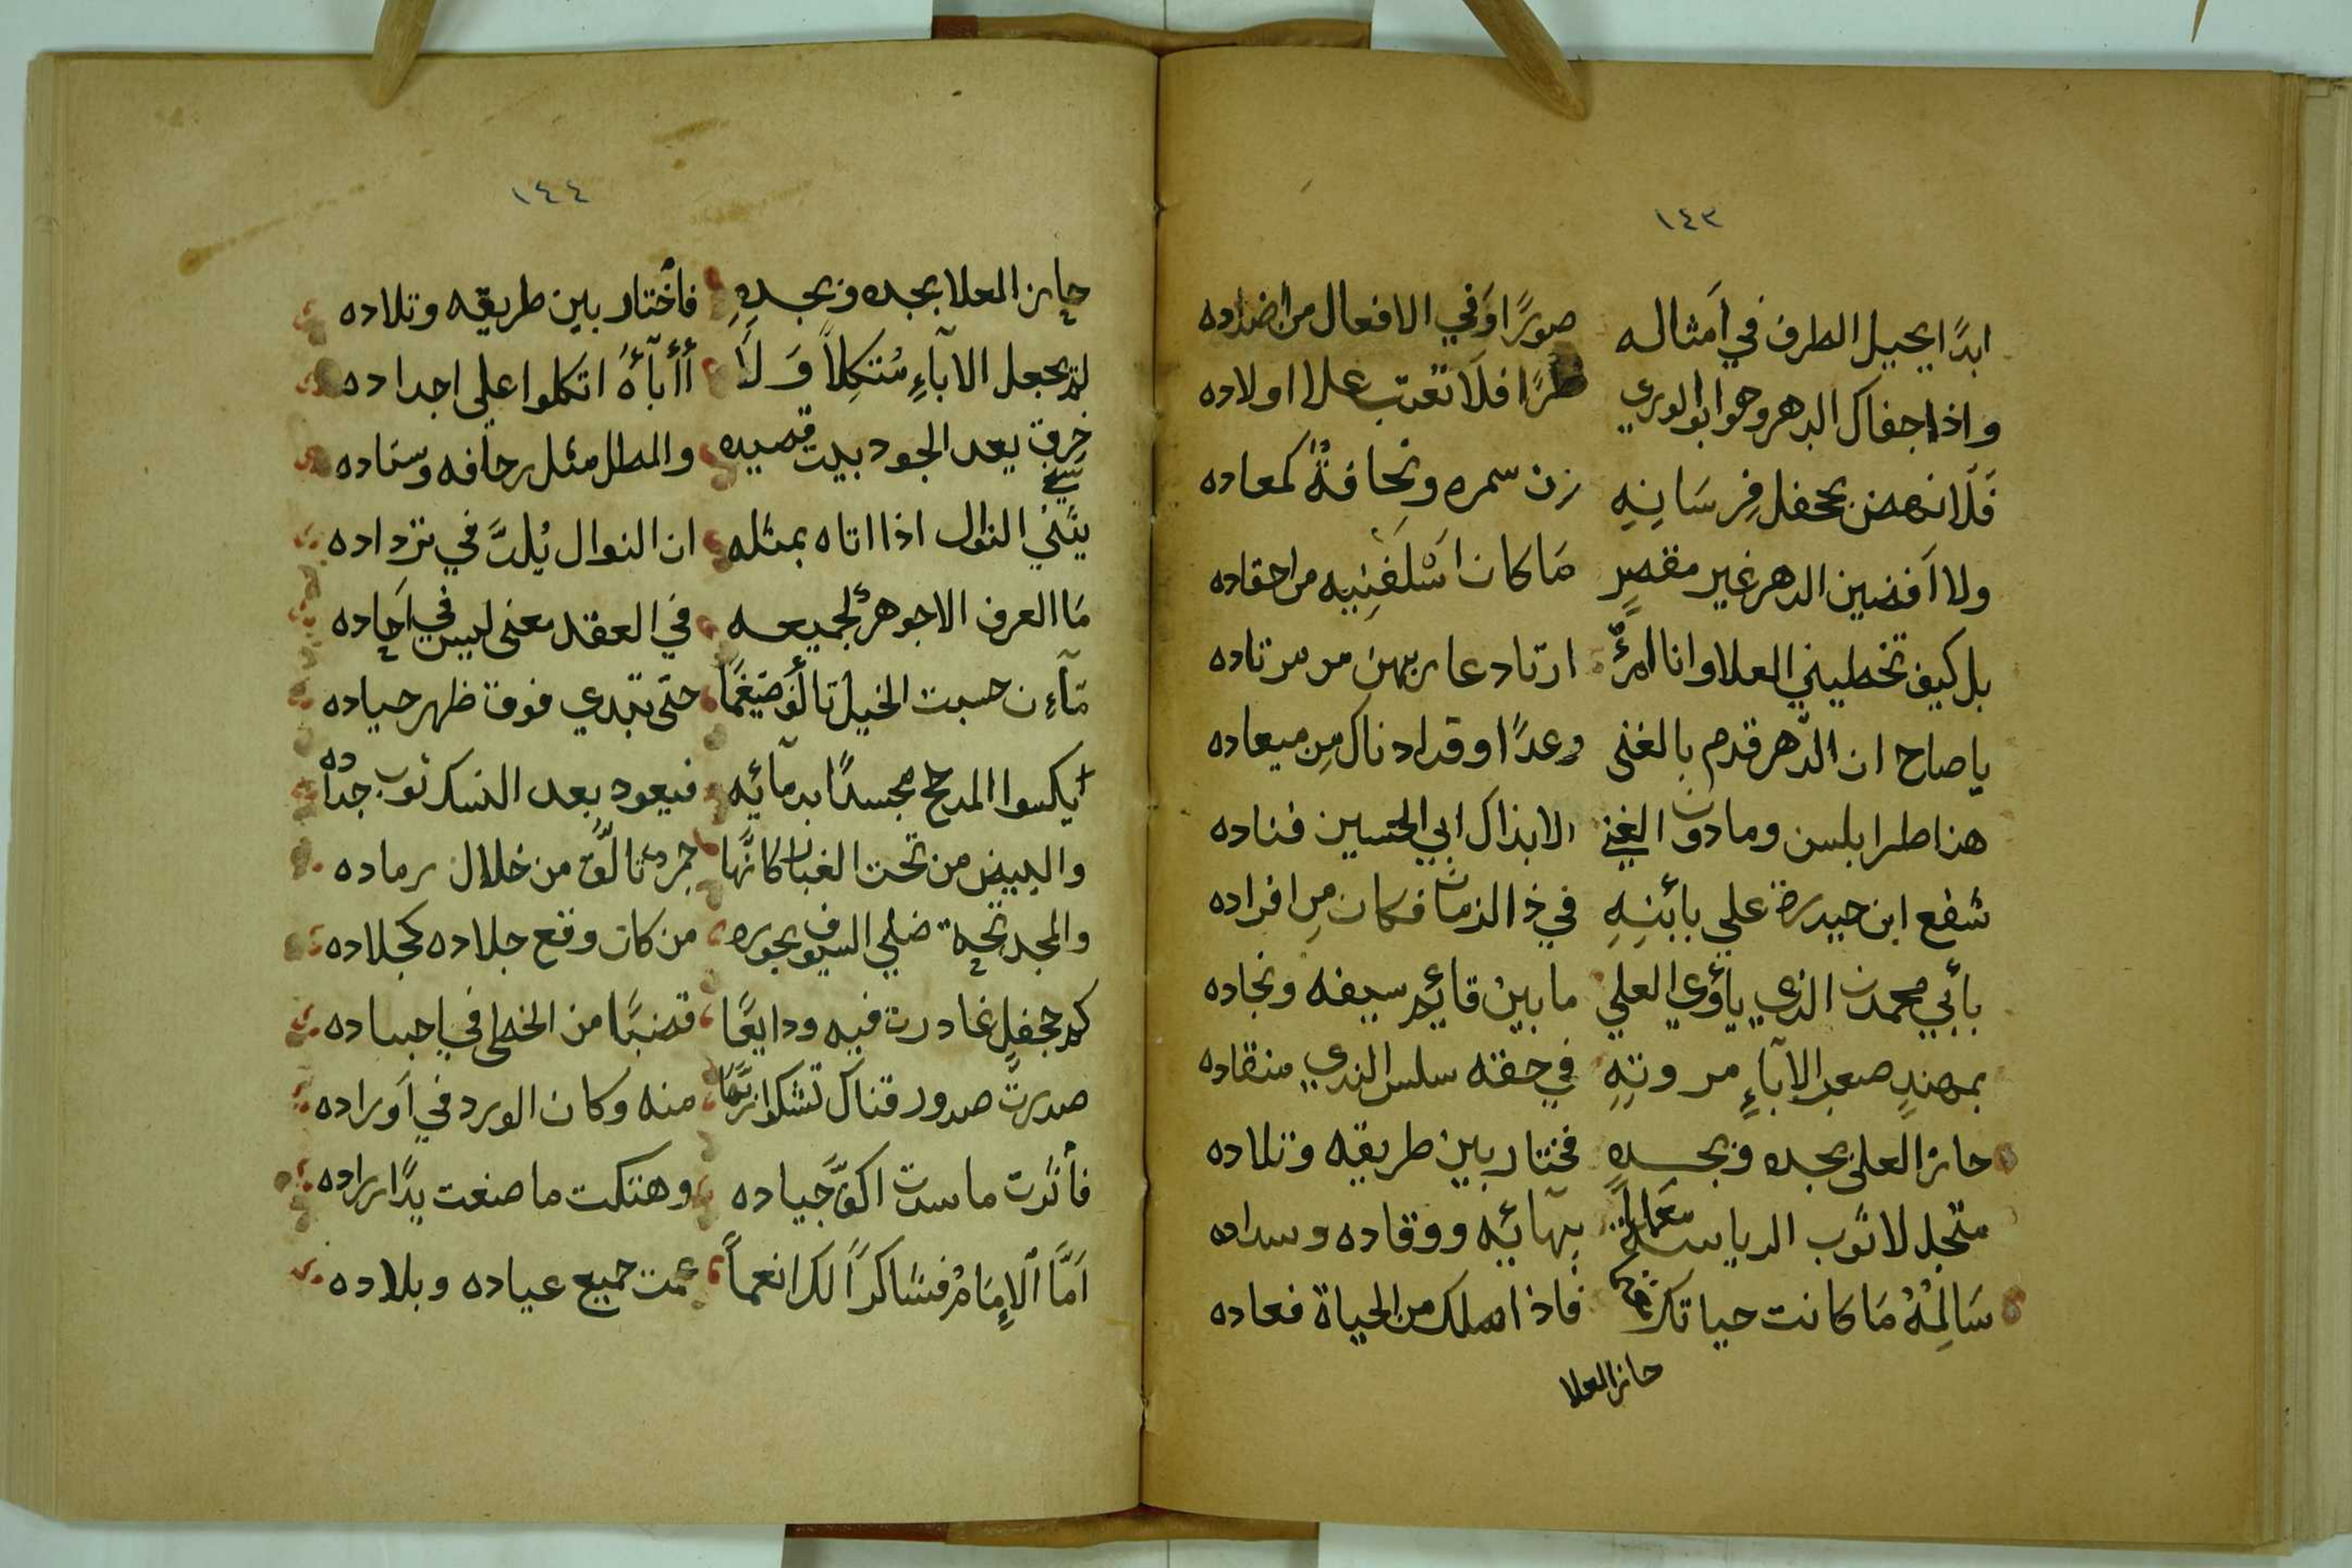 ١٤٣
ابدًا يحيل الطرف في اَمثاله صورًا وَفي الافعال من اضداده
واذا جفاك الدهر وهوا بوالوري طرًا فلَا تعتب علا اولاده
فَلَانهضن بجحفل فِرسَانِهِ زن سمره ونحافةٌ كمعاده
ولا اَفضين الدهر غير مقصرٍ مَا كان من احقاده
بل كيف تخطيني العلا وانا امرئٌ ارتاد عاريهن من مرتاده
ياصاح ان الدّهر قدم بالغنى وعدًا وقد ادناك مِن ميعاده
هذا طرابلس ومادون الغني الابذاك ابي الحسين فناده
شفع ابن حيدرة علي بابنِهِ في ذا الزمان فكان مِن افراده
بأبي محمدن الذي يأوي العلي مابين قائم سيفه ونجاده
بمهندٍ صعب الاباءِ مروتِهِ في حقه سلس الندي منقاده
حازالعلى بجده وبجدهِ فختار بين طريقه وتلاده
متجل لاثوب الرياسة معلماً ببهائيه ووقاده وسداده
سَالِمْهُ مَا كانت حياتك فاذا مللك من الحياة فعاده
حازالعلا
١٤٤
حازالمعلا بجده وبجدهِ فاختار بين طريقه وتلاده
لم يجعل الاباءِ مُتكِلاً وَلَا أأبآءهُ اتكلوا على اجداده
خرق يعد الجود بيت قصيده والمطل مثل زحافه وسناده
يثني النوال اذا اتاه بمثله ان النوال يُلذّ في تزداده
مَا العرف الاجوهرٌ لجميعه في العقد معنى ليس في اَحاده
مآءِن حسبت الخيل تالف ضيغمًا حتى تبدي فوق ظهر جياده
يكسوا المدحج مجسدًا بدمآئيه فيعود بعد النسك ثوب جداده
والبيض من تحت الغبار كانّها جمر تالّق من خلال رماده
والمجد تحية ضلي السيوف بجوره من كان وقع جلاده كجلاده
كم جحفلٍ غادرت فيه ودايعًا قضبًا من الخط في اجساده
صدرتّ صدور قناك تشكوا منه وكان الورد في اَوراده
فأثرت ماسدت اكفّ جياده وهتكت ماصنعت يدًا زراده
اَمّا الإِمَامُ فشاكراً لك انعماً عمت جميع عياده وبلاده